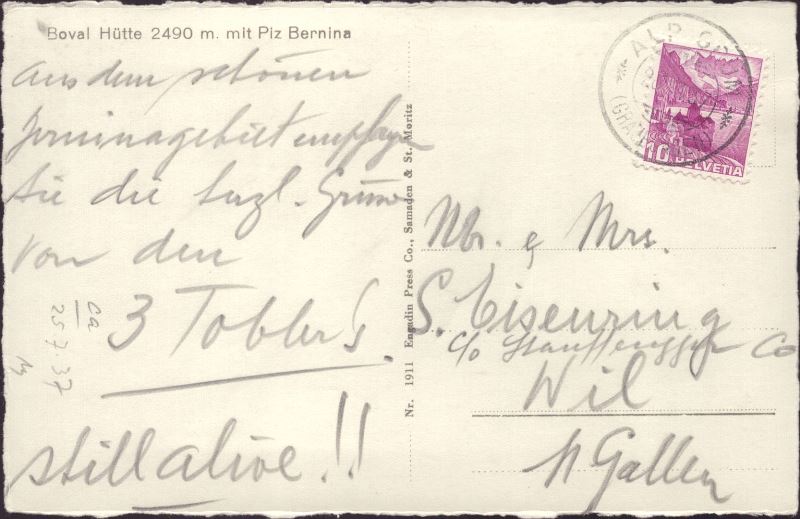 Boval Hütte 2490 m. mit Piz Bernina
Aus dem schönen
Berninagebiet empfangen
Sie die herzl. Grüsse
von den
3 Tobler's.
still alive!!
ca
25 7 37
Nr. 1911 Engadin Press Co., Samaden & St. Moritz
* ALP GRÜM *
10 HELVETIA
Mr. & Mrs.
S. Eisenring
c/o Co
Wil
St Gallen